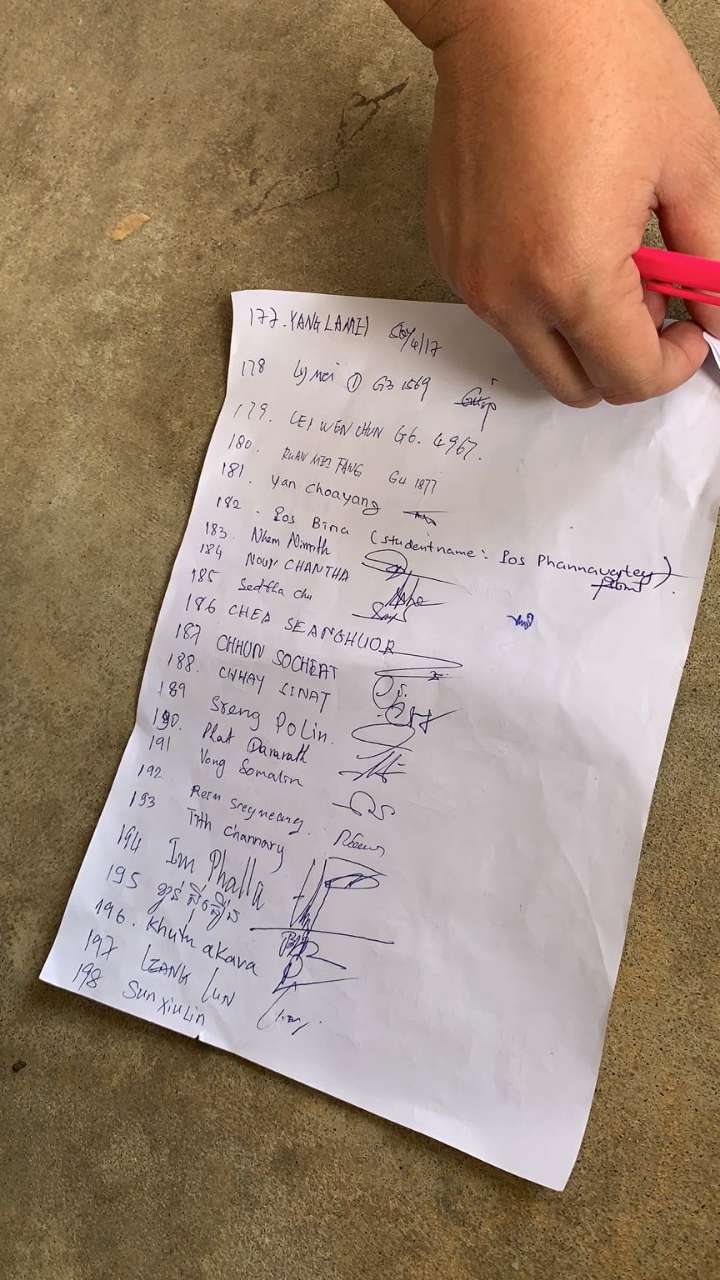 177. YANG LAMEI
178 Ly Mei ① G3 1569
179. LEI WEN CHUN G6. 4967.
180. RUAN MEI FANG G4 1877
181. Yan Choayang
182. Pos Bina (student name: Pos Phannavatey).
183. Nhem Nimoth
184 NOUN CHANTHA
185 Sedtha chu
186 CHEA SEANGHUOR
187 CHHUN SOCHEAT
188. CHHAY SINAT
189 Sreng Polin.
190. Phat Dararath
191 Vong Somalin
192 Roeun Sreyneang.
193 Tith Channary
194 Im Phalla
195
196. Khum akara
197 LZANG LUN
198 Sun XiuLin